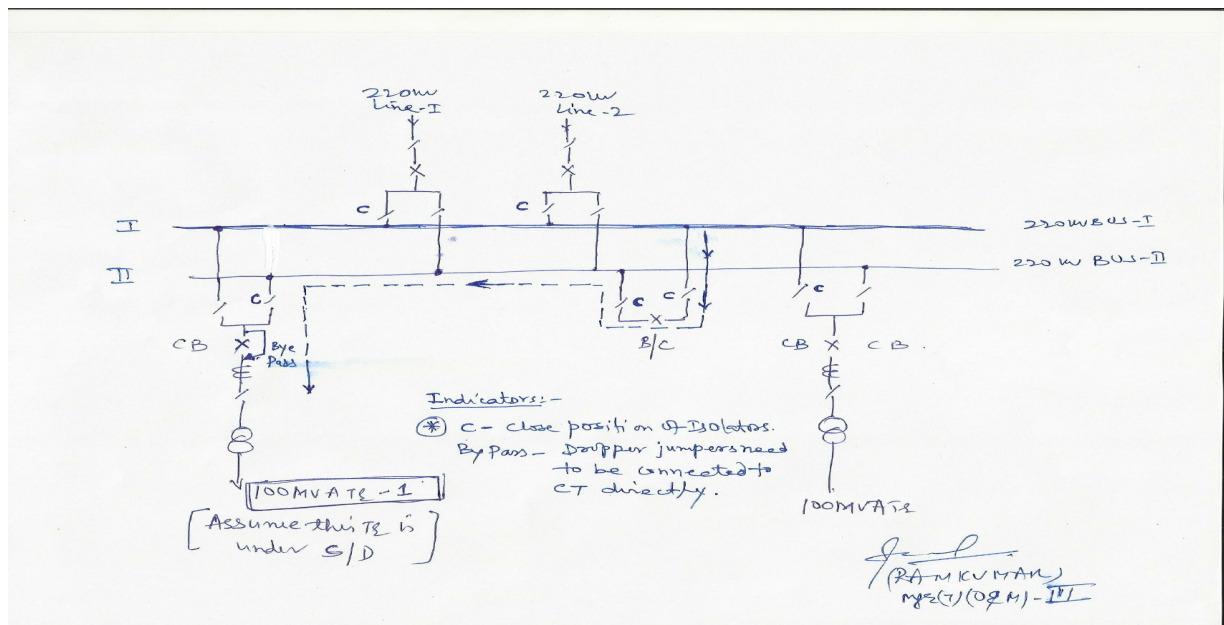 220kv
Line-I
220kv
Line-2
C
C
I
220kv BUS-I
II
220 kv BUS-II
C
C
C
C
CB
Bye
Pass
B/C
CB
CB.
Indicators:-
* C - Close position of Isolators.
By Pass - Dropper jumpers need
to be connected to
CT directly.
100MVA TR - 1
[Assume this TR is
under S/D]
100MVA TR
(RAMKUMAR)
(T)(O&M)-III